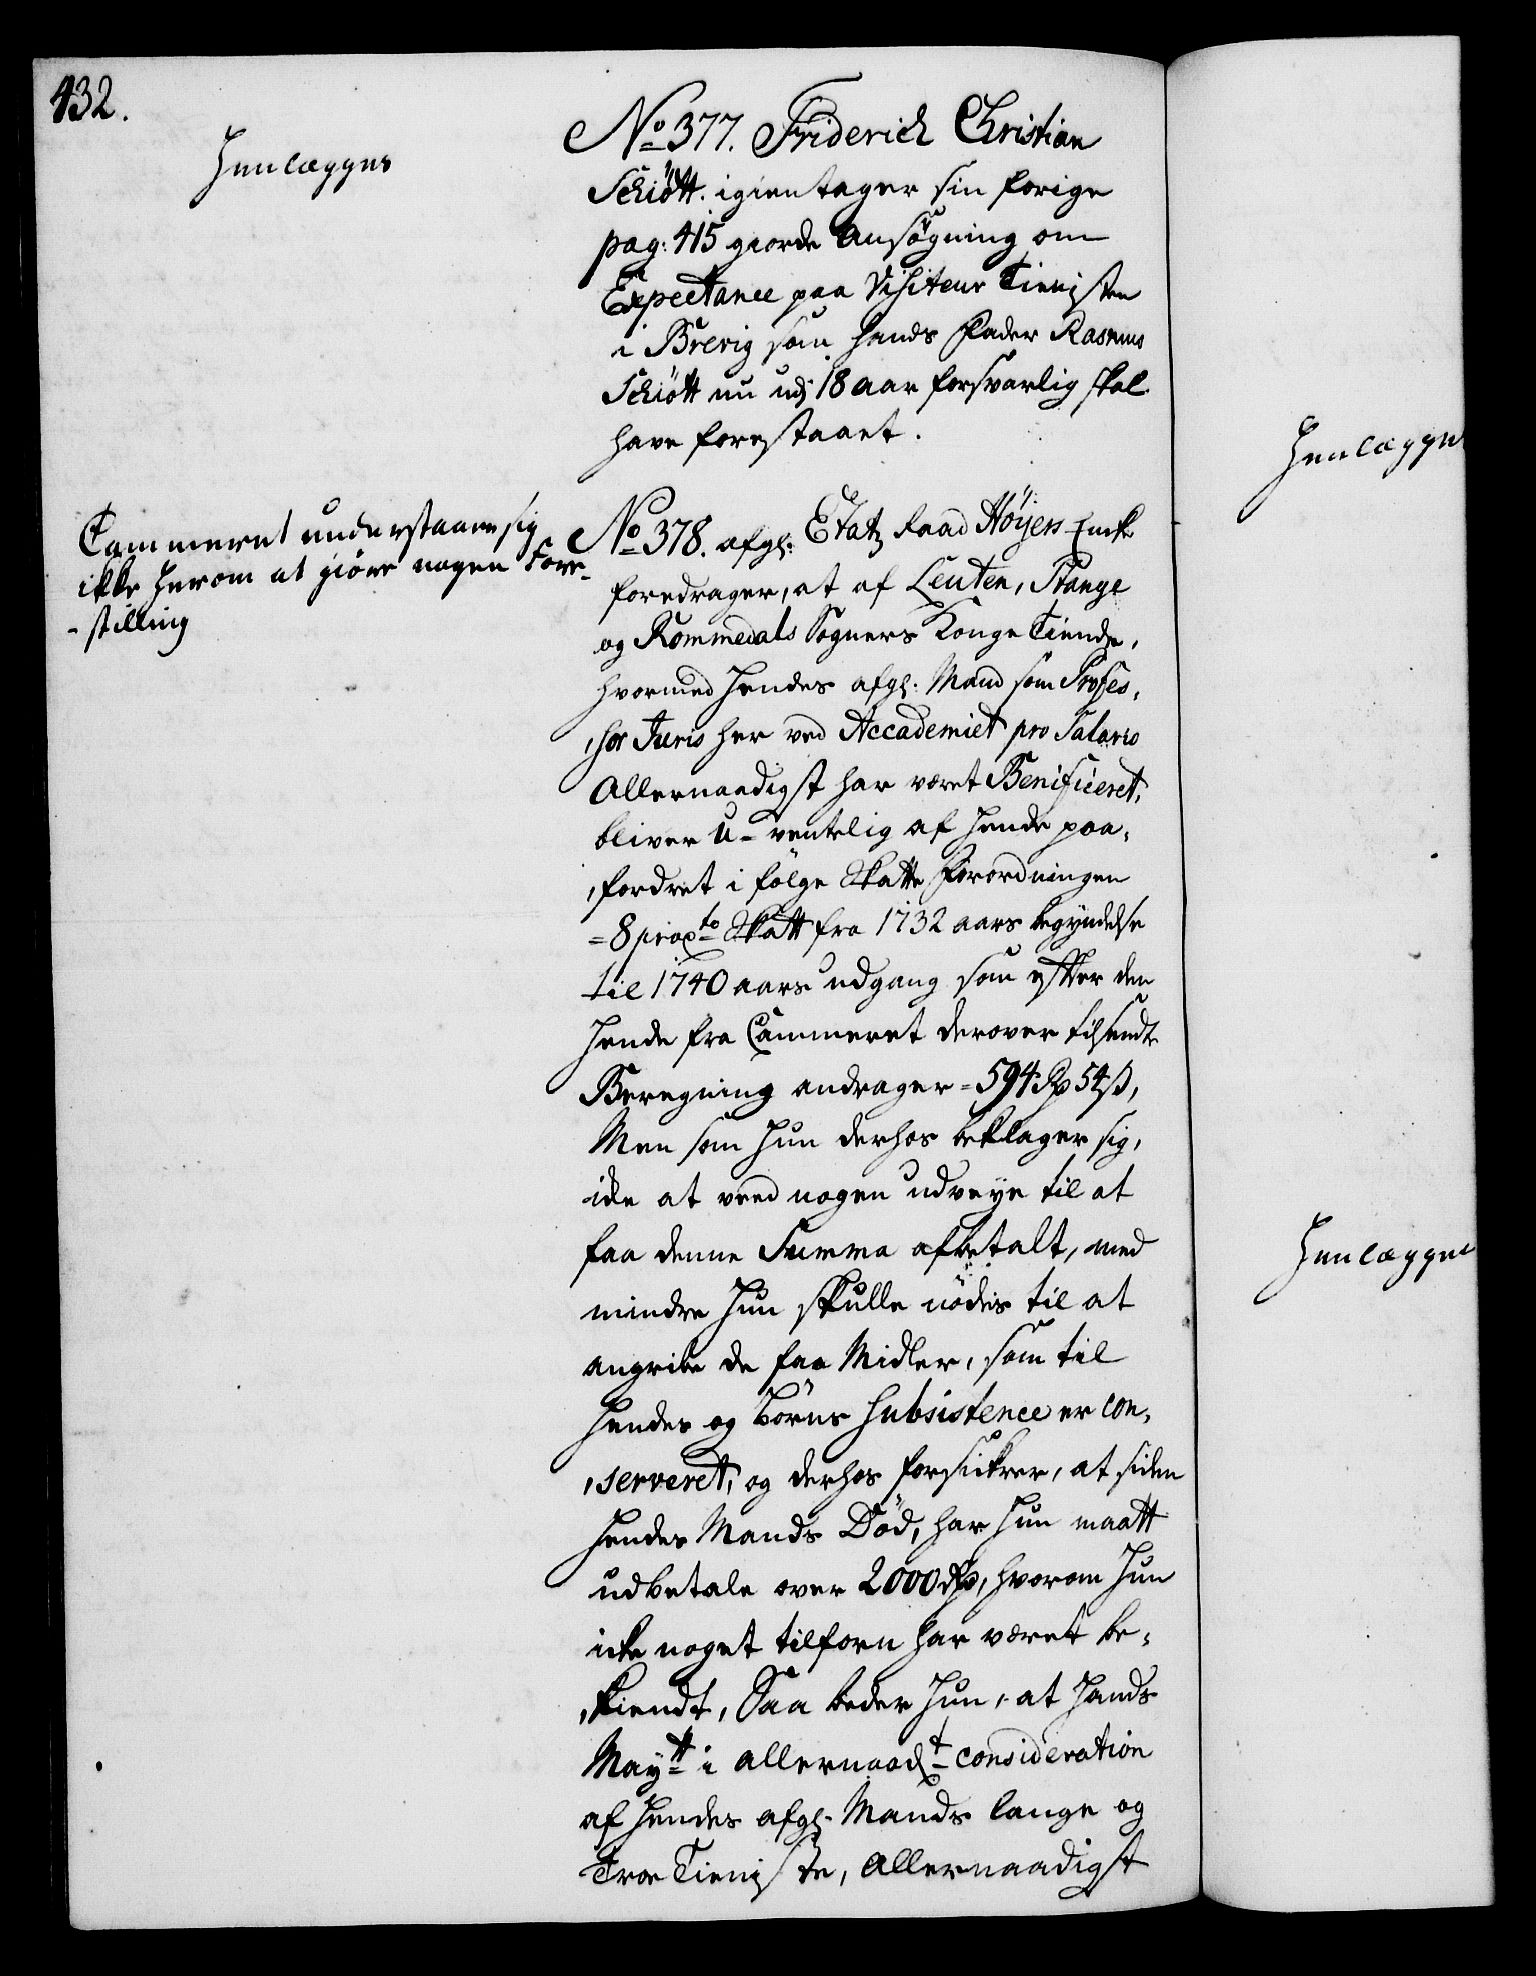 432.
Henlægges
No 377. Friderich Christian
Schiött. igientager sin forige
pag: 415 giorde Ansögning om
Expectance paa Visiteur Tienisten
i Brevig som hands Fader Rasmus
Schiött nu udj 18 aar forsvarlig skal
have forestaaet.
Cammeret understaaer sig
ikke herom at giöre nogen Fore-
-stilling
No 378. afgl: Etatz Raad Höÿers Encke
foredrager, at af Leuten, Stange
og Rommedals Sogners Konge Tiende,
hvormed hendes afgl: Mand som Profes,
,sor Juris her ved Accademiet pro Salario
Allernaadigst har været Benificeret,
bliver U-ventelig af hende paa,
,fordret i fölge Skatte Forordningen
=8 procto Skatt fra 1732 aars begyndelse
til 1740 aars udgang som efter den
hende fra Cammeret derover tilsendte
Beregning andrager = 594 Rd 54 s,
Men som hun derhos beklager sig,
ike at veed nogen udveye til at
faa denne Summa afbetalt, med
mindre hun skulle nödes til at
angribe de faa Midler, som til
hendes og Börns Subsistence er con,
,serveret, og derhos forsickrer, at siden
hendes Mands Död, har hun maatt
udbetale over 2000 Rd, hvorom hun
icke noget tilforn har været be,
,kiendt, Saa beder hun, at Hands
Maytt i allernaadt consideration
af hendes afgl. Mands lange og
Troe Tieniste, Allernaadigst
Henlægges
Henlægges